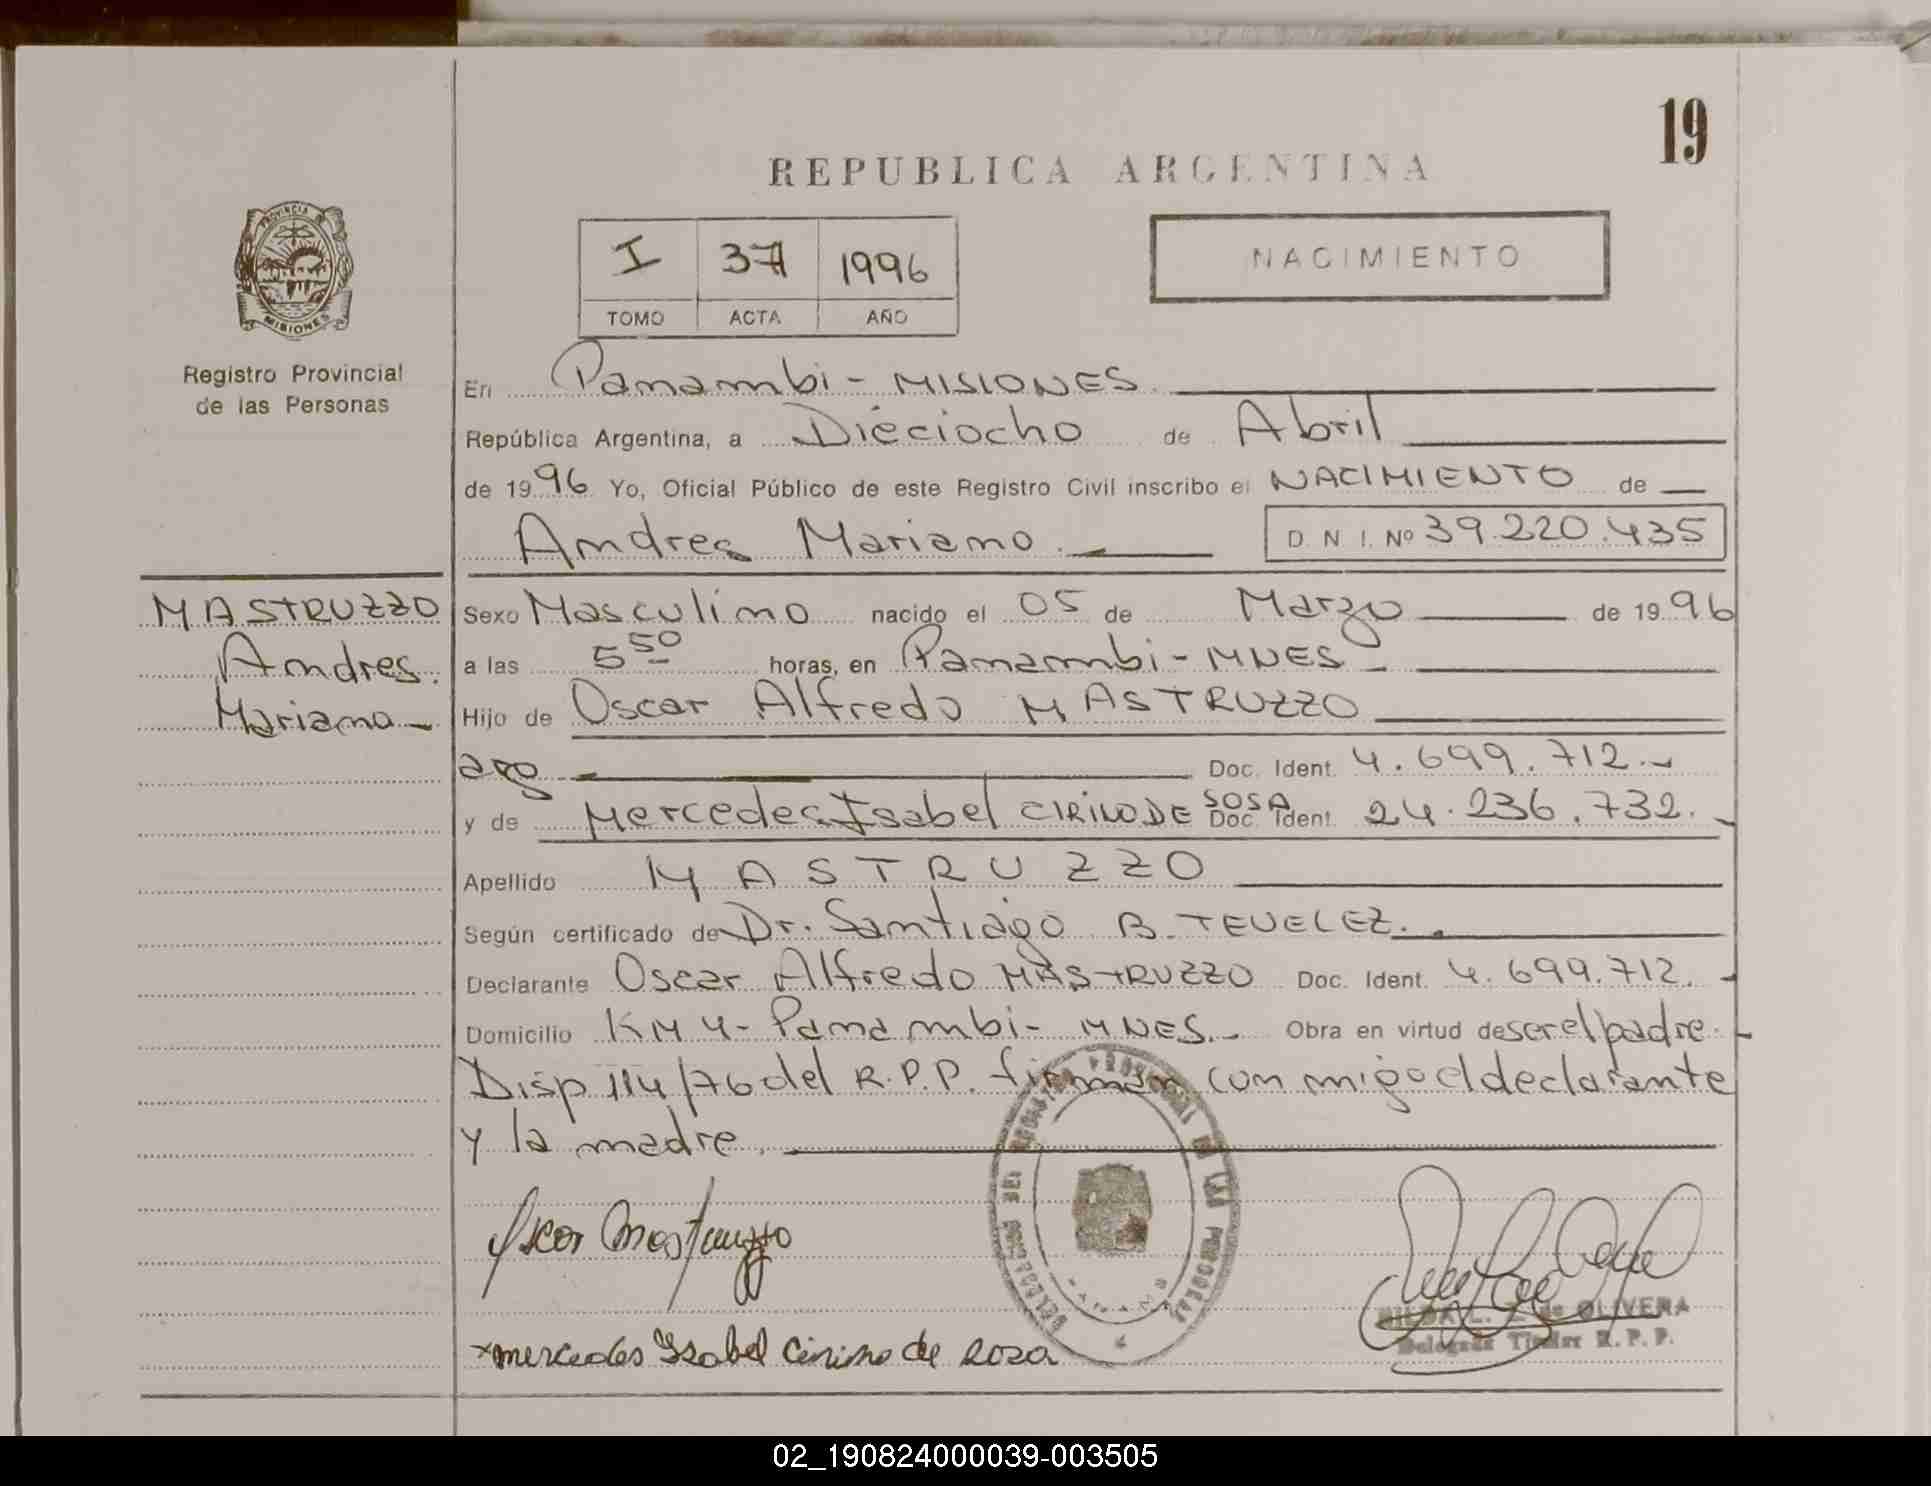 19
REPUBLICA ARGENTINA
PROVINCIA DE
MISIONES
Registro Provincial
de las Personas
I 37 1996
TOMO ACTA AÑO
NACIMIENTO
En Panambi - MISIONES.
República Argentina, a Dieciocho de Abril
de 1996 Yo, Oficial Público de este Registro Civil inscribo el NACIMIENTO de
Andres Mariano. D. N. I. Nº 39.220.435
MASTRUZZO
Andres.
Mariano
Sexo Masculino nacido el 05 de Marzo de 1996
a las 5 50 horas, en Panambi - MNES
Hijo de Oscar Alfredo MASTRUZZO
arg Doc. Ident. 4.699.712.-
y de Mercedes Isabel CIRINO DE SOSA Doc. Ident. 24.236.732.-
Apellido MASTRUZZO
Según certificado de Dr. Santiago B. TEVELEZ.
Declarante Oscar Alfredo MASTRUZZO Doc. Ident. 4.699.712.-
Domicilio KM 4 - Panambi - MNES.- Obra en virtud de ser el padre.-
Disp 114/76 del R.P.P. firman con migo el declarante
y la madre.
Oscar Mastruzzo
Mercedes Isabel Cirino de Sosa
REGISTRO PROVINCIAL DE LAS PERSONAS
L. Z. de OLIVERA
Delegada Titular R. P. P.
02_190824000039-003505